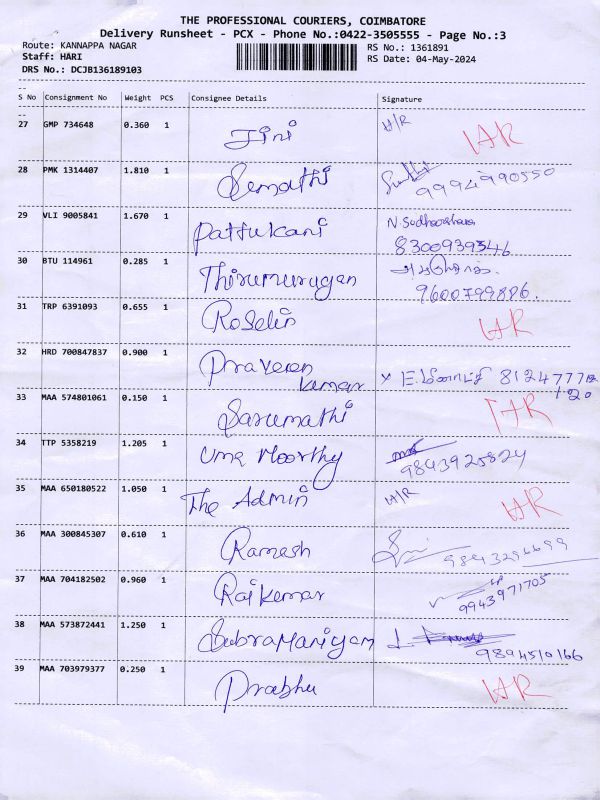 THE PROFESSIONAL COURIERS, COIMBATORE
Delivery Runsheet - PCX - Phone No.:0422-3505555 - Page No.:3
Route: KANNAPPA NAGAR RS No.: 1361891
Staff: HARI RS Date: 04-May-2024
DRS No.: DCJB136189103
S No Consignment No Weight PCS Consignee Details Signature
27 GMP 734648 0.360 1 Jini H/R HR
28 PMK 1314407 1.810 1 Semathi 9994990550
29 VLI 9005841 1.670 1 Pattukani N. Sudhooshara
8300939546
30 BTU 114961 0.285 1 Thirumurugan
9600799886.
31 TRP 6391093 0.655 1 Roselin HR
32 HRD 700847837 0.900 1 Praveen
kumar x 81247771
1:20
33 MAA 574801061 0.150 1 Sarumathi HR
34 TTP 5358219 1.205 1 Uma Moorthy
9843925824
35 MAA 650180522 1.050 1 The Admin H/R HR
36 MAA 300845307 0.610 1 Ramesh 9843296699
37 MAA 704182502 0.960 1 Rajkumar
9943971705
38 MAA 573872441 1.250 1 Subramaniyam
9894510166
39 MAA 703979377 0.250 1 Prabhu HR